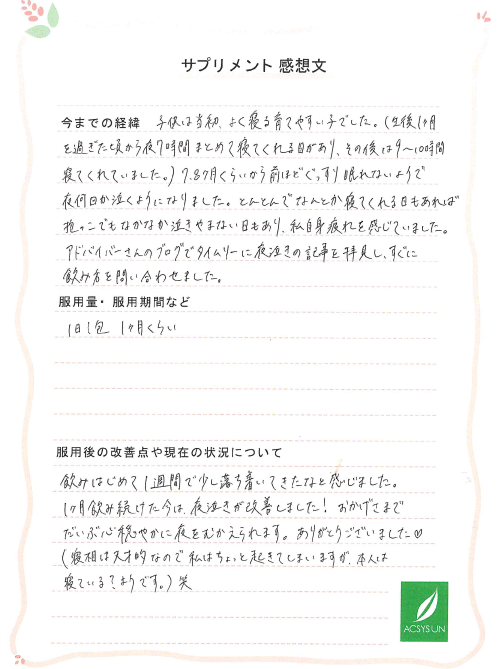 サプリメント 感想文
今までの経緯 子供は当初、よく寝る育てやすい子でした。(生後1ヶ月
を過ぎた頃から夜7時間まとめて寝てくれる日があり、その後は9～10時間
寝てくれていました。) 7.8ヶ月くらいから前ほどぐっすり眠れないようで
夜何回か泣くようになりました。とんとんでなんとか寝てくれる日もあれば
抱っこでもなかなか泣きやまない日もあり、私自身疲れを感じていました。
アドバイバーさんのブログでタイムリーに夜泣きの記事を拝見し、すぐに
飲み方を問い合わせました。
服用量・服用期間など
1日1包 1ヶ月くらい
服用後の改善点や現在の状況について
飲みはじめて1週間で少し落ち着いてきたなと感じました。
1ヶ月飲み続けた今は、夜泣きが改善しました! おかげさまで
だいぶ心穏やかに夜をむかえられます。ありがとうございました♡
(寝相は天才的なので私はちょっと起きてしまいますが、本人は
寝ている?ようです。) 笑
ACSYSUN